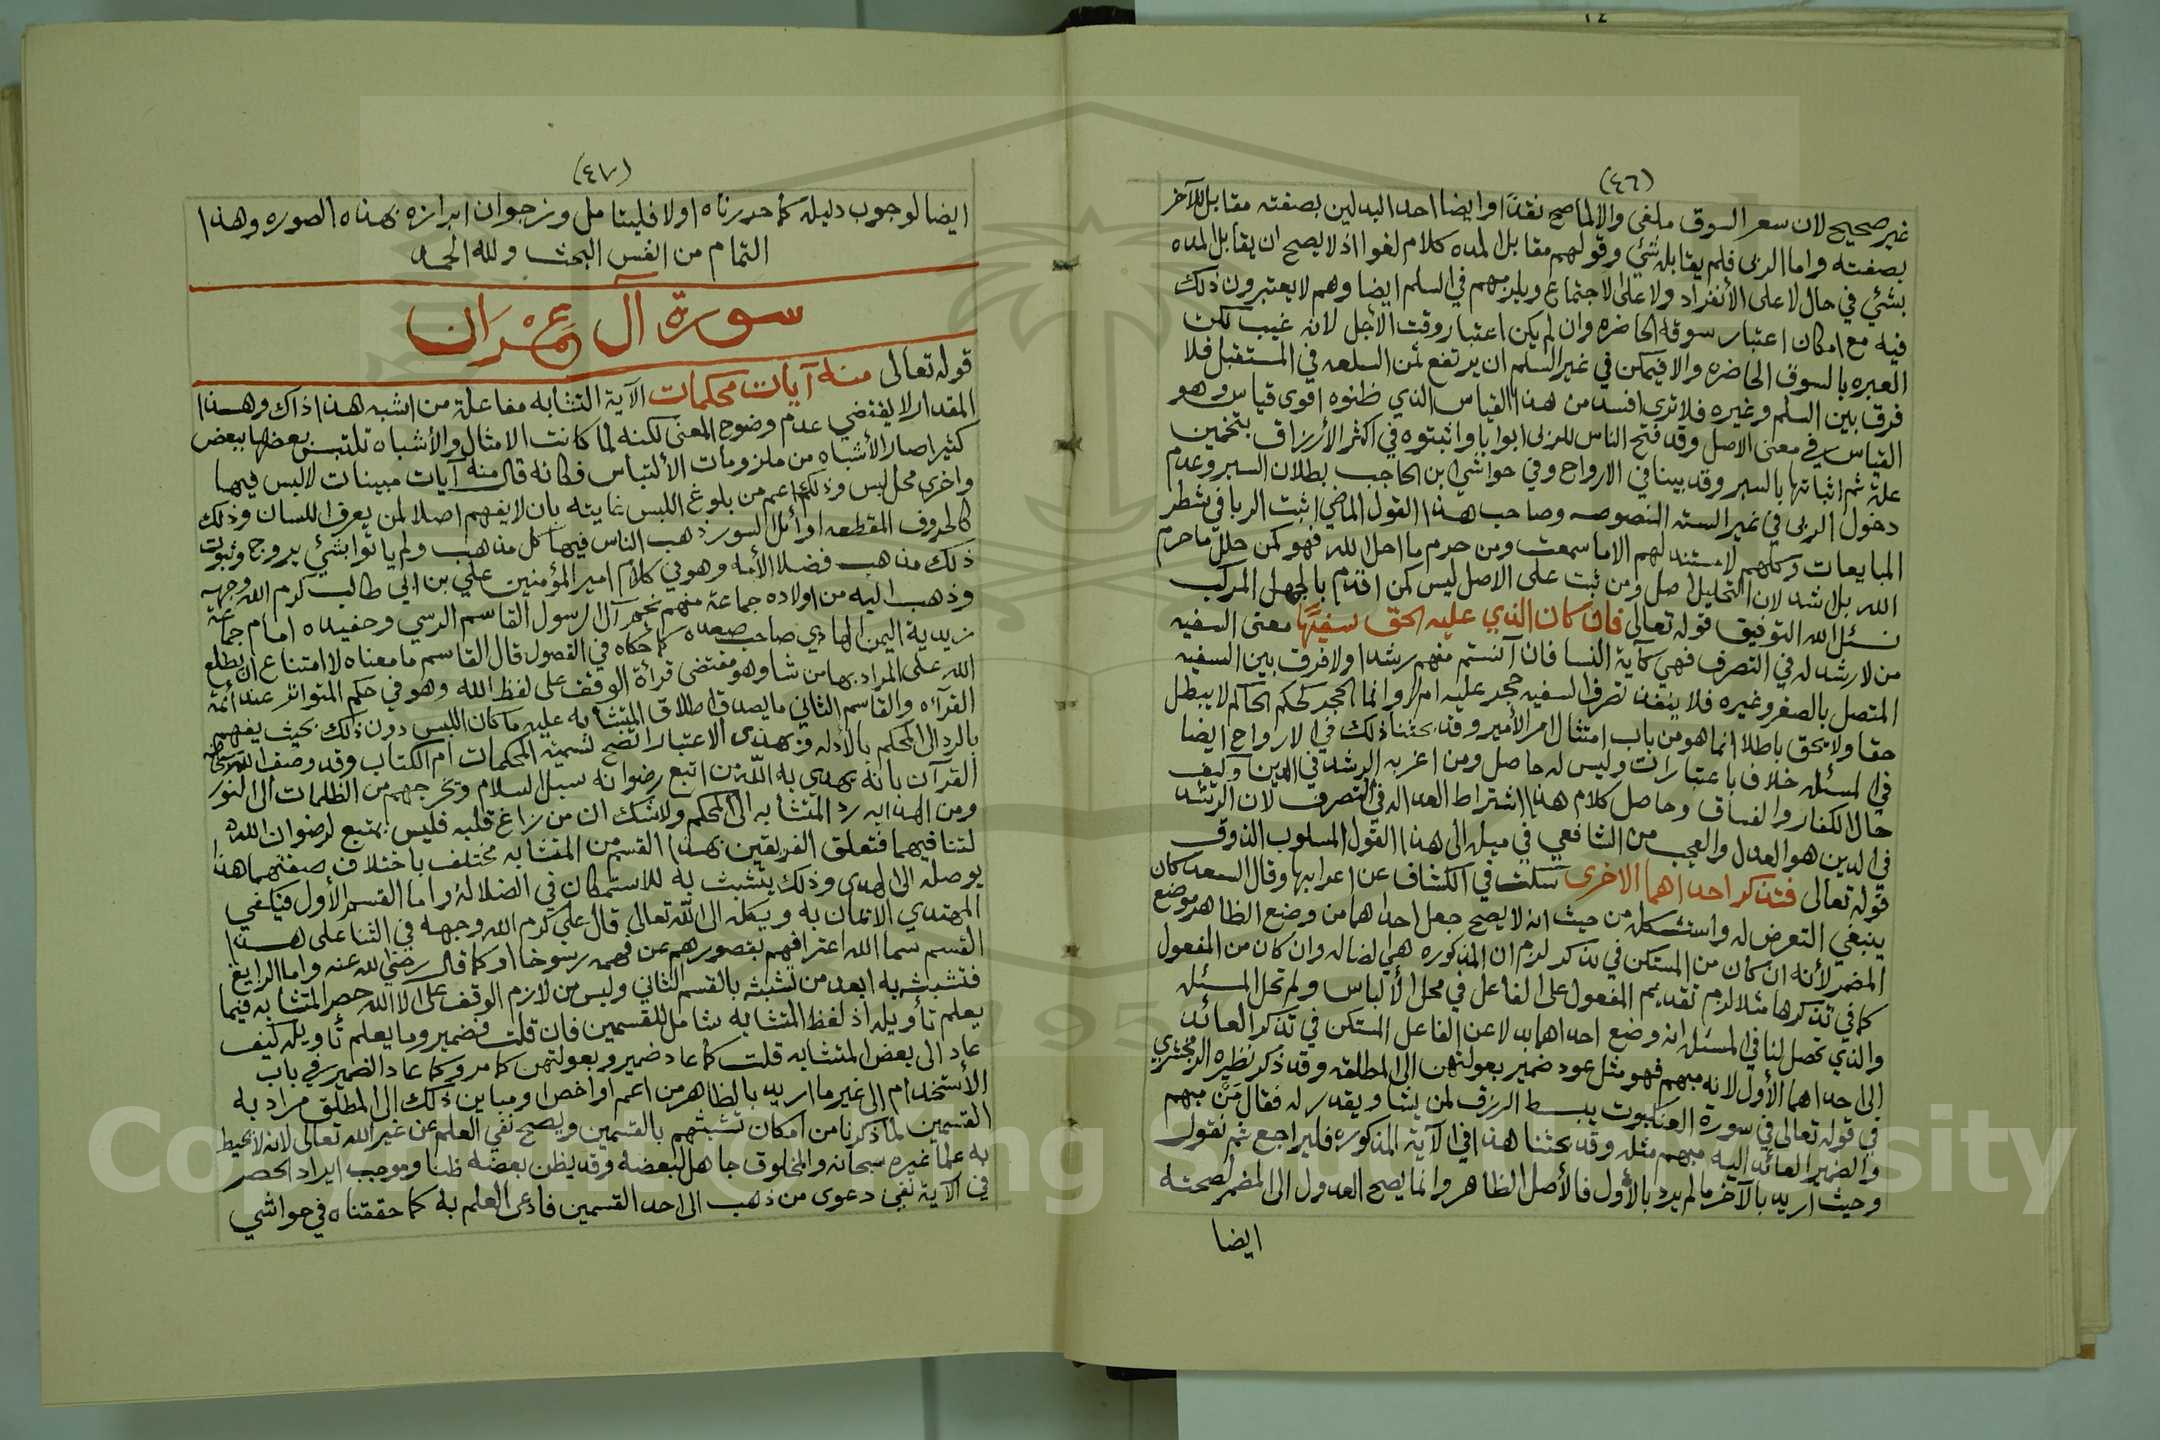 (٤٦)
غير صحيح لان سعر السوق ملغى والا لما صح نقدا وايضا احد البدلين بصفته مقابل للآخر
بصفته واما الربى فلم يقابله شئي وقولهم مقابل المده كلام لغو اذ لا يصح ان يقابل المده
بشئي في حال لا على الأنفراد ولا على الاجتماع ويلزمهم في السلم ايضا وهم لا يعتبرون ذلك
فيه مع امكان اعتبار سوقه الحاضره وان لم يكن اعتبار وقت الأجل لانه غيب لكن
العبره بالسوق الحاضره والا فيمكن في غير السلم ان يرتفع ثمن السلعه في المستقبل فلا
فرق بين السلم وغيره فلا ترى افسد من هذا القياس الذي ظنوه اقوى قياس وهو
القياس في معنى الاصل وقد فتح الناس للربى ابوابا واثبتوه في اكثر الأرزاق بتخمين
علة ثم اثباتها بالسبر وقد بينا في الارواح وفي حواشي ابن الحاجب بطلان السبر وعدم
دخول الربى في غير السته المنصوصه وصاحب هذا القول الماضي اثبت الربا في شطر
المبايعات وكلهم لا مستند لهم الا ما سمعت ومن حرم ما احل الله فهو كمن حلل ما حرم
الله بل اشد لان التحليل اصل ومن ثبت على الاصل ليس كمن اقدم بالجهل المركب
نسئل الله التوفيق قوله تعالى فان كان الذي عليه الحق سفيهًا معنى السفيه
من لا رشد له في التصرف فهي كآية النسا فان آنستم منهم رشدا ولا فرق بين السفيه
المتصل بالصغر وغيره فلا ينفذ تصرف السفيه حجر عليه ام لا وانما الحجر كحكم الحاكم لا يبطل
حقا ولا يحق باطلا انما هو من باب امتثال امر الأمير وقد بحثنا ذلك في الارواح ايضا
في المسئله خلاف باعتبارات وليس له حاصل ومن اغربه الرشد في الدين وكيف
حال الكفار والفساق وحاصل كلام هذا اشتراط العداله في التصرف لان الرشد
في الدين هو العدل والعجب من الشافعي في ميله الى هذا القول المسلوب الذوق
قوله تعالى فتذكر احداهما الاخرى سكت في الكشاف عن اعرابها وقال السعد كان
ينبغي التعرض له واستشكله من حيث انه لا يصح جعل احداهما من وضع الظاهر موضع
المضمر لأنه ان كان من المستكن في تذكر لزم ان المذكوره هي الضاله وان كان من المفعول
كما في تذكرها مثلا لزم تقديم المفعول على الفاعل في محل الألباس ولم تحل المسئله
والذي تحصل لنا في المسئله انه وضع احداهما بدلا عن الفاعل المستكن في تذكر العائد
الى احداهما الأول لانه مبهم فهو مثل عود ضمير بعولتهن الى المطلقه وقد ذكر نظيره الزمخشري
في قوله تعالى في سورة العنكبوت يبسط الرزق لمن يشا ويقدر له فقال مَن مبهم
والضمير العائد اليه مبهم مثله وقد بحثنا هذا في الآية المذكوره فليراجع ثم نقول
وحيث اريد بالآخر ما لم يرد بالأول فالأصل الظاهر وانما يصح العدول الى المضمر لصحته
ايضا
(٤٧)
ايضا لوجوب دليله كما حررناه اولا فليتامل ونرجو ان ابرازه بهذه الصوره وهذا
التمام من انفس البحث ولله الحمد
سورة آل عِمْرَان
قوله تعالى منه آيات محكمات الآية التشابه مفاعلة من اشبه هذا ذاك وهذا
المقدار لا يقتضي عدم وضوح المعنى لكنه لما كانت الامثال والأشباه تلتبس بعضها ببعض
كثيرا صار الأشباه من ملزومات الألتباس فكانه قال منه آيات مبينات لا لبس فيها
واخرى محل لبس وذلك اعم من بلوغ اللبس غايته بان لا يفهم اصلا لمن يعرف اللسان وذلك
كالحروف المقطعه اوائل السور ذهب الناس فيها كل مذهب ولم ياتوا بشئي يروج وثبوت
ذلك مذهب فضلا الأمه وهو في كلام امير المؤمنين علي بن ابي طالب كرم الله وجهه
وذهب اليه من اولاده جماعة منهم نجم آل الرسول القاسم الرسي وحفيده امام جماعة
زيدية اليمن الهادي صاحب صعده كما حكاه في الفصول قال القاسم ما معناه لا امتناع ان يطلع
الله على المراد بها من شا وهو مقتضى قرأة الوقف على لفظ الله وهو في حكم المتواتر عند أئمة
القرآه والقاسم الثاني ما يصدق اطلاق المتشابه عليه ما كان اللبس دون ذلك بحيث يفهم
بالرد الى المحكم بالأدله وبهذى الاعتبار اتضح تسميه المحكمات ام الكتاب وقد وصف الله سبحانه
القرآن بانه يهدي به الله من اتبع رضوانه سبل السلام وتخرجهم من الظلمات الى النور
ومن الهدايه رد المتشابه الى المحكم ولا شك ان من زاغ قلبه فليس بمتبع لرضوان الله
لتنافيهما فتعلق الفريقين بهذا القسم من المتشابه مختلف باختلاف صفتهما هذا
يوصله الى الهدى وذلك يتشبث به للاستمكان في الضلاله واما القسم الأول فيكفي
المهتدي الايمان به ويكله الى الله تعالى قال علي كرم الله وجهه في الثنا على هذا
القسم سما الله اعترافهم بقصورهم عن فهمه رسوخا او كما قال رضي الله عنه واما الزايغ
فتشبثه به ابعد من تشبثه بالقسم الثاني وليس من لازم الوقف على الا الله حصر المتشابه فيما
يعلم تأويله اذ لفظ المتشابه شامل للقسمين فان قلت فضمير وما يعلم تأويله كيف
عاد الى بعض المتشابه قلت كما عاد ضمير وبعولتهن كما مر وكما عاد الضمير في باب
الأستخدام الى غير ما اريد بالظاهر من اعم او اخص او مباين ذلك الى المطلق مراد به
القسمين لما ذكرنا من امكان تشبثهم بالقسمين ويصح نفي العلم عن غير الله تعالى لانه لا يحيط
به علما غيره سبحانه والمخلوق جاهل لبعضه وقد يظن بعضه ظنا وموجب ايراد الحصر
في الآية نفي دعوى من ذهب الى احد القسمين فادعى العلم به كما حققناه في حواشي
Copyright © King Saud University
1957